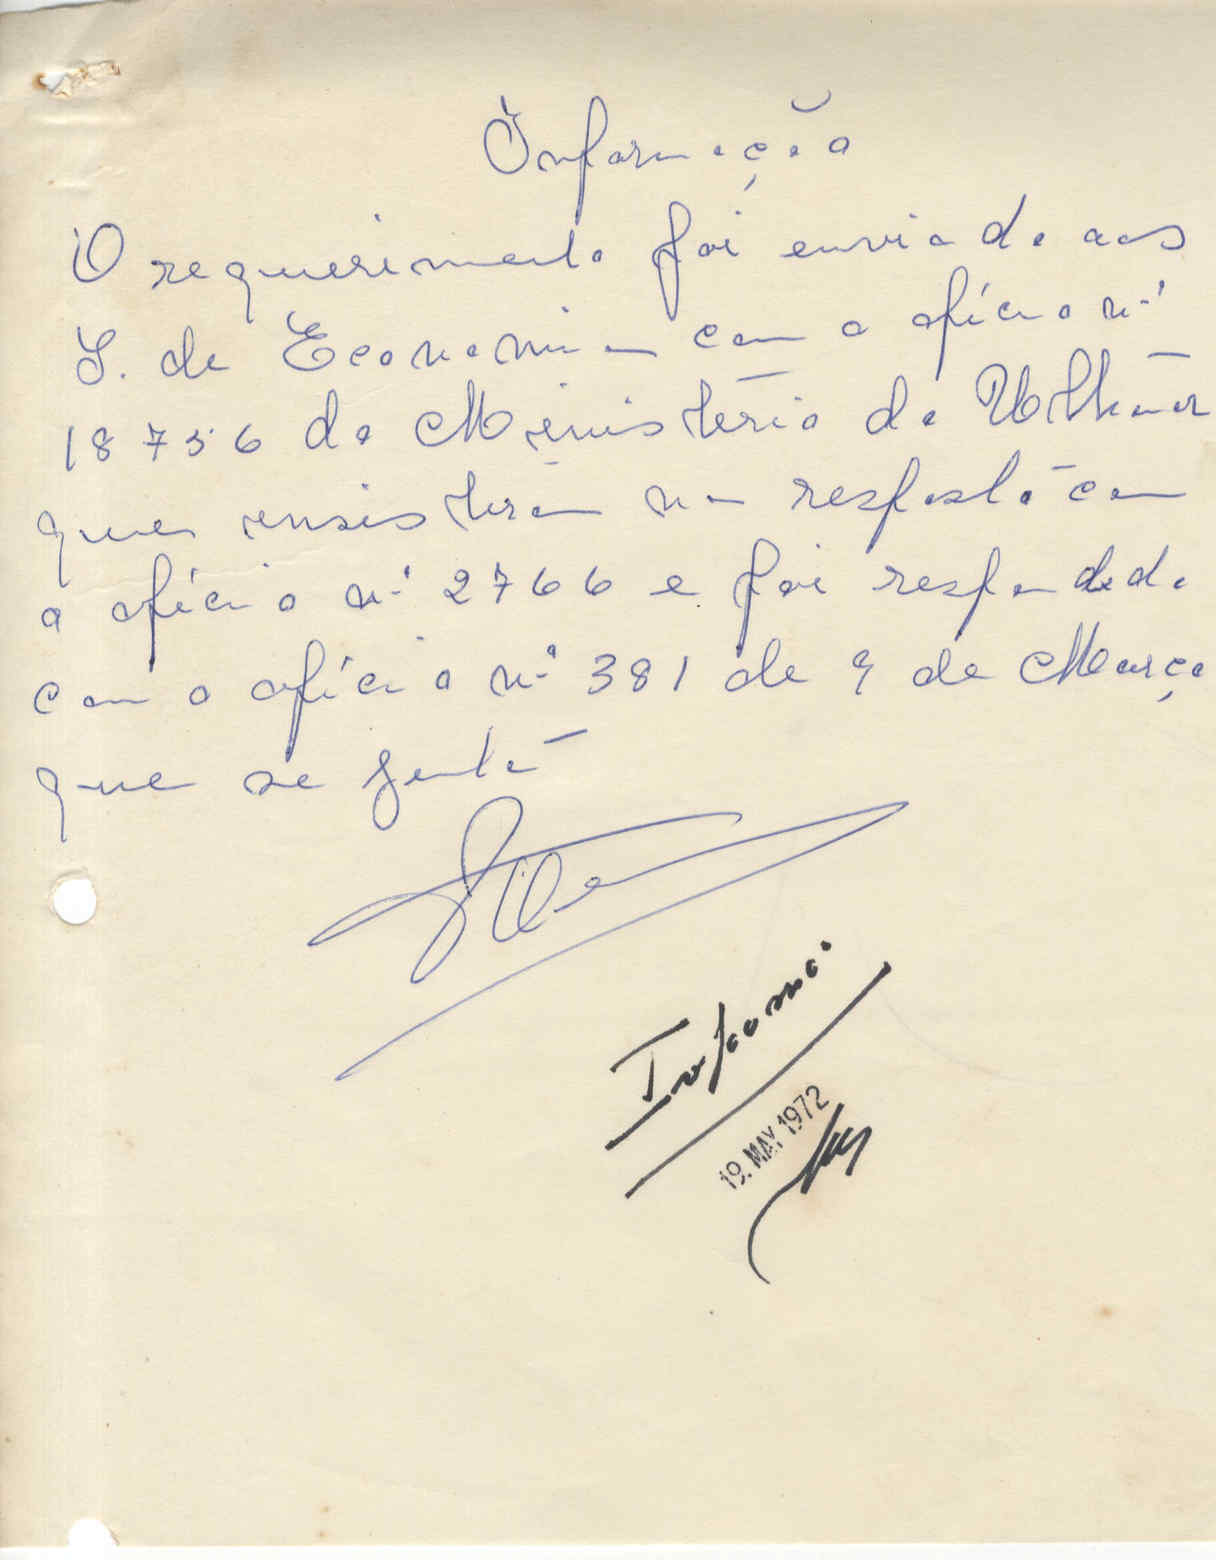 Informação
O requerimento foi enviado aos
S. de Economia com o ofício nº
18756 do Ministério do Ultramar
que insistiram na resposta com
o ofício nº 2766 e foi respondido
com o ofício nº 381 de 9 de Março
que se junta
Informo.
19. MAY. 1972